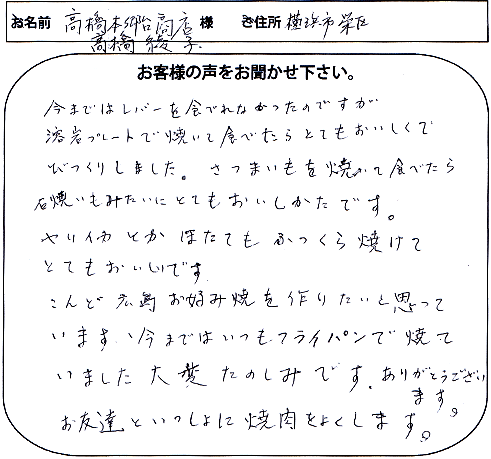 お名前 高橋本郷台商店 様 ご住所 横浜市栄区
高橋 綾子
お客様の声をお聞かせ下さい。
今まではレバーを食べれなかったのですが
溶岩プレートで焼いて食べたらとてもおいしくて
びっくりしました。さつまいもを焼いて食べたら
石焼いもみたいにとてもおいしかたです。
ヤリイカとかほたてもふっくら焼けて
とてもおいしいです
こんど広島お好み焼を作りたいと思って
います、今まではいつもフライパンで焼て
いました大変たのしみです。ありがとうござい
ます。
お友達といっしょに焼肉をよくします。